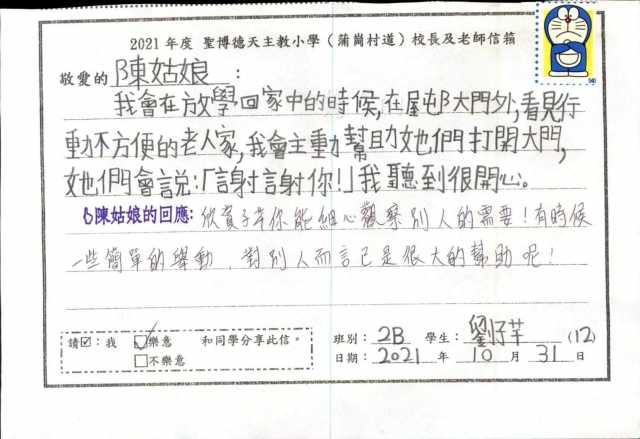 2021 年度 聖博德天主教小學（蒲崗村道）校長及老師信箱
敬愛的 陳姑娘 ：
我會在放學回家中的時候,在屋邨大門外,看見行
動不方便的老人家,我會主動幫助她們打開大門,
她們會說:「謝謝你!」我聽到很開心。
陳姑娘的回應: 欣賞子芊你能細心觀察別人的需要!有時候
一些簡單的舉動,對別人而言已是很大的幫助呢!
請☑：我 ☑樂意 和同學分享此信。
□不樂意
班別： 2B 學生： 劉子芊 (12)
日期： 2021 年 10 月 31 日